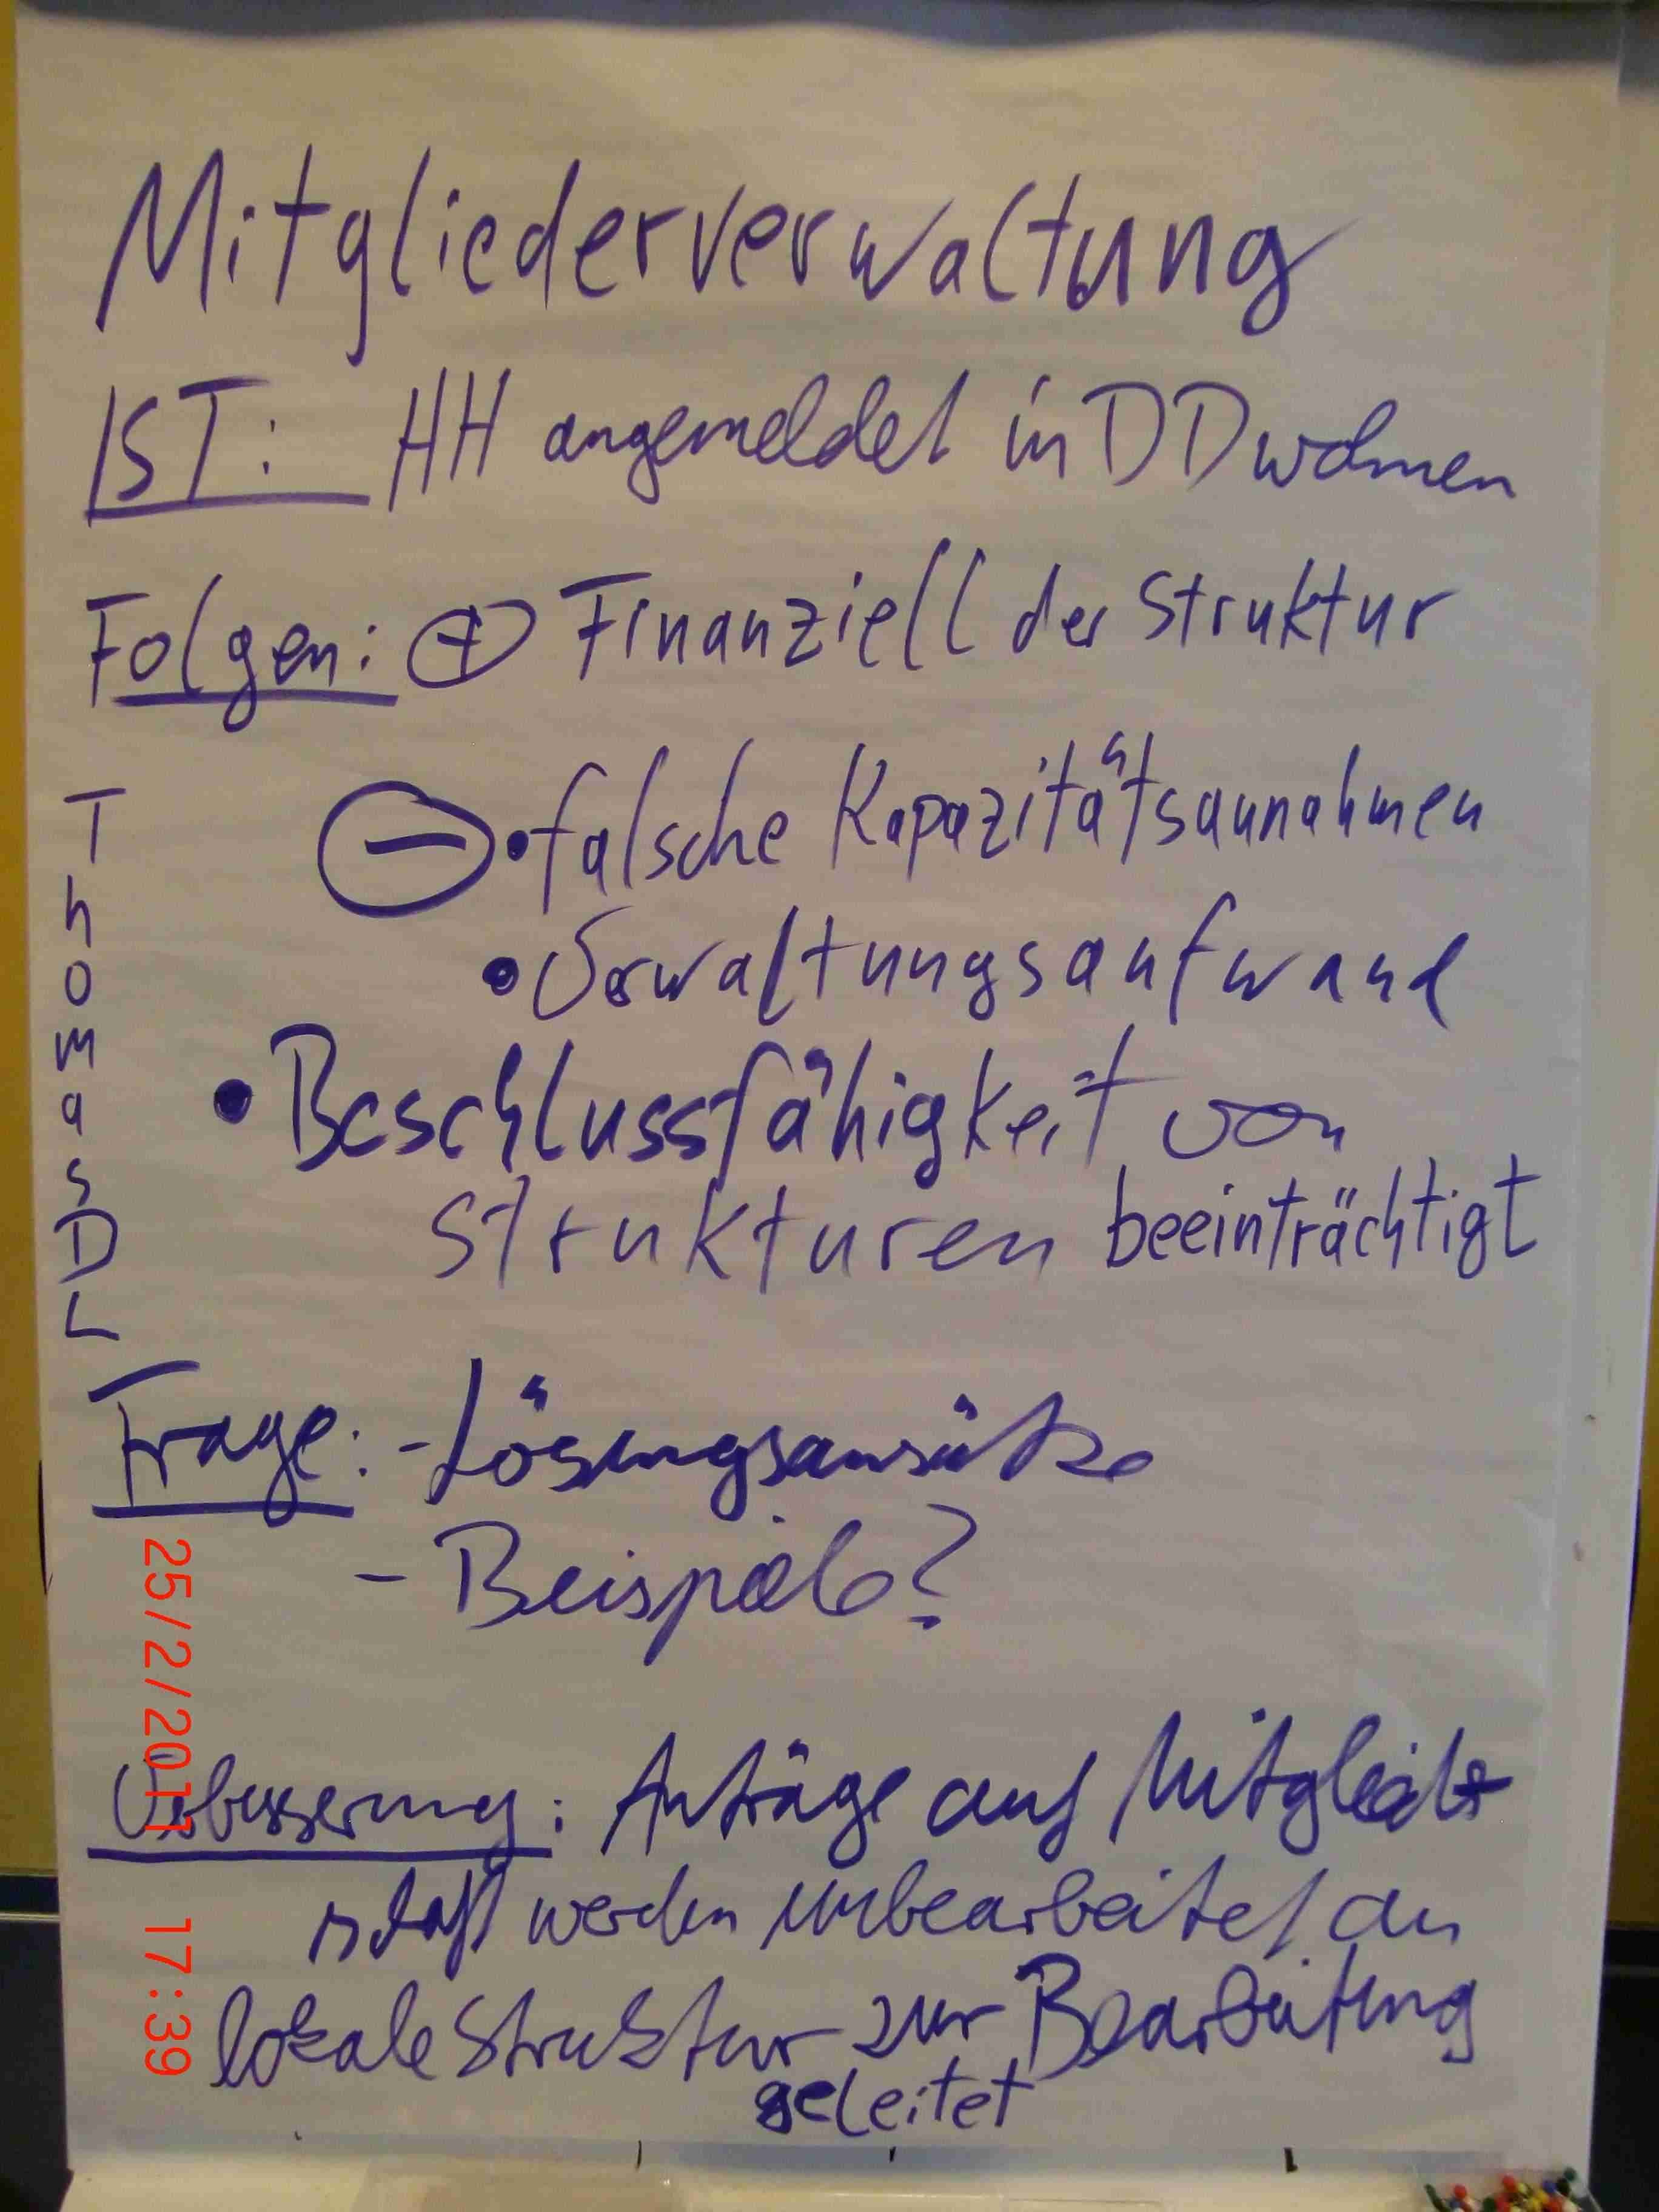 Mitgliederverwaltung
IST: HH angemeldet in DD wohnen
Folgen: ⊕ Finanziell der Struktur
⊖ • falsche Kapazitätsannahmen
• Verwaltungsaufwand
• Beschlussfähigkeit von
Strukturen beeinträchtigt
ThomasDL
Frage: - Lösungsansätze
- Beispiele?
Verbesserung: Anträge auf Mitglied
schaft werden unbearbeitet an
lokale Struktur zur Bearbeitung
geleitet
25/2/2011 17:39